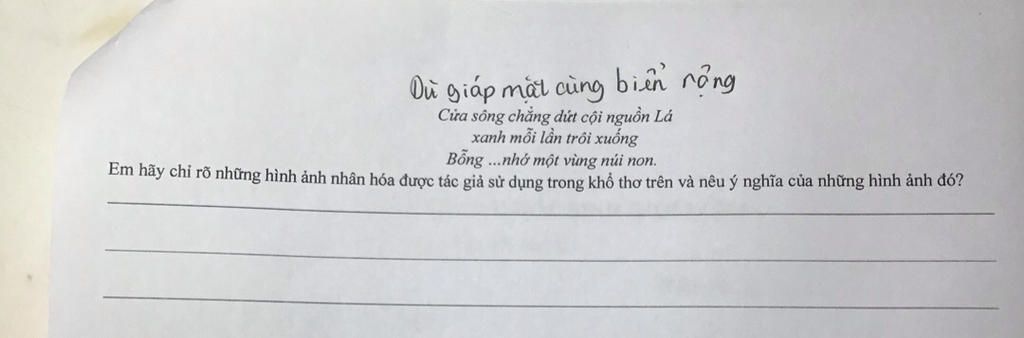 Dù giáp mặt cùng biển rộng
Cửa sông chẳng dứt cội nguồn Lá
xanh mỗi lần trôi xuống
Bỗng ...nhớ một vùng núi non.
Em hãy chỉ rõ những hình ảnh nhân hóa được tác giả sử dụng trong khổ thơ trên và nêu ý nghĩa của những hình ảnh đó?